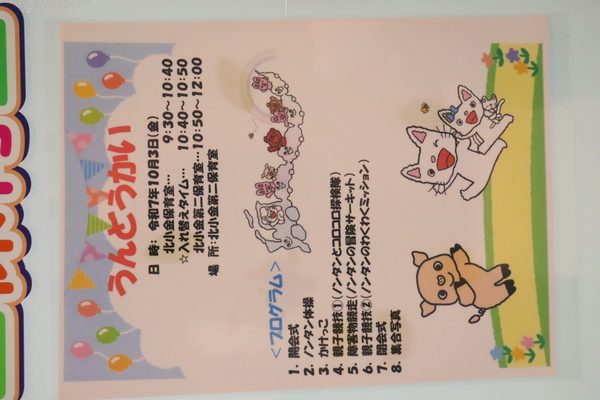 うんどうかい
日 時: 令和7年10月3日(金)
北小金保育室… 9:30～10:40
☆入れ替えタイム… 10:40～10:50
北小金第二保育室…10:50～12:00
場 所:北小金第二保育室
＜プログラム＞
1. 開会式
2. ノンタン体操
3. かけっこ
4. 親子競技①(ノンタンとコロコロ探検隊)
5. 障害物競走(ノンタンの冒険サーキット)
6. 親子競技②(ノンタンのわくわくミッション)
7. 閉会式
8. 集合写真